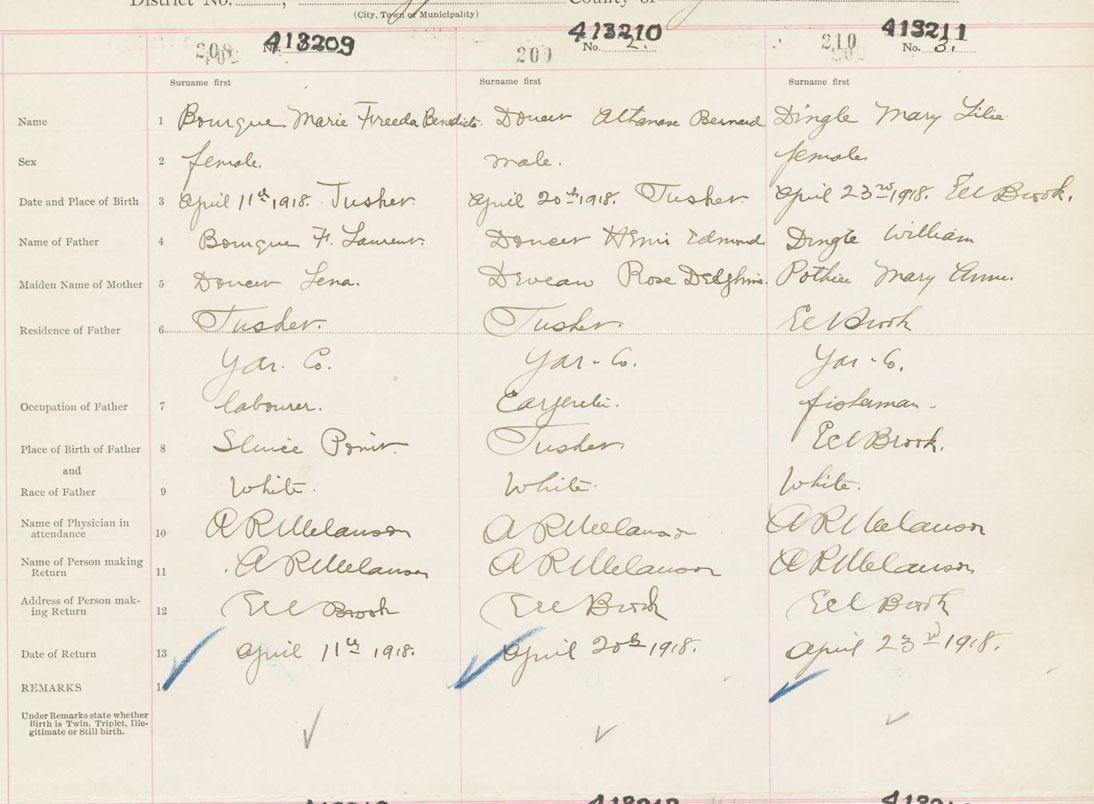 District No. , County of
(City, Town or Municipality)
208 No. 413209 413210 413211
209 No. 2. 210 No. 3.
Surname first Surname first Surname first
Name 1 Bourque Marie Freeda Benedicte Doucet Athanase Bernard Dingle Mary Lilia
Sex 2 female. male. female
Date and Place of Birth 3 April 11th 1918. Tusket April 20th 1918. Tusket April 23rd 1918. Eel Brook.
Name of Father 4 Bourque F. Laurent. Doucet Henri Edmond Dingle William
Maiden Name of Mother 5 Doucet Lena. Deveau Rose Delphine. Pothier Mary Anne.
Residence of Father 6 Tusket. Tusket. Eel Brook
Yar. Co. Yar. Co. Yar. Co.
Occupation of Father 7 labourer. fisherman.
Place of Birth of Father 8 Sluice Point Tusket Eel Brook.
and
Race of Father 9 White. White. White.
Name of Physician in
attendance 10 A R Melanson A R Melanson A R Melanson
Name of Person making
Return 11 A R Melanson A R Melanson A R Melanson
Address of Person mak-
ing Return 12 Eel Brook Eel Brook Eel Brook
Date of Return 13 April 11th 1918. April 20th 1918. April 23rd 1918.
REMARKS 14
Under Remarks state whether
Birth is Twin, Triplet, Ille-
gitimate or Still birth.